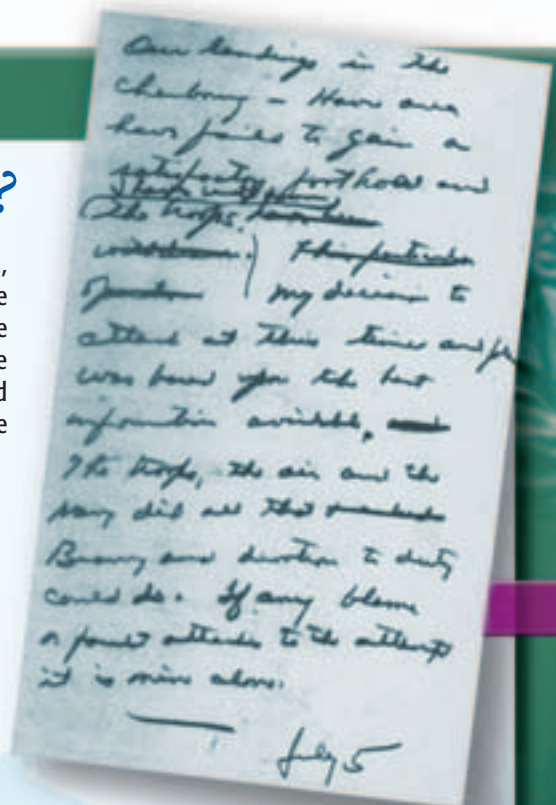 ?
,
e
e
e
d
e
Our landings in the
Cherbourg - Havre area
have failed to gain a
satisfactory foothold and
I have withdrawn
the troops. have been
withdrawn. This particular
operation My decision to
attack at this time and place
was based upon the best
information available, and
The troops, the air and the
Navy did all that
Bravery and devotion to duty
could do. If any blame
or fault attaches to the attempt
it is mine alone.
July 5